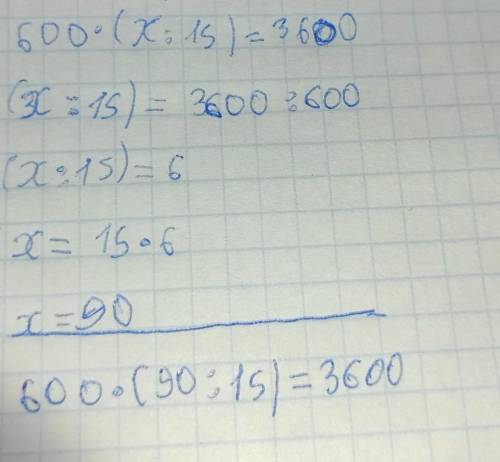 600·(x:15)=3600
(x:15)= 3600:600
(x:15)=6
x= 15·6
x=90
600·(90:15)=3600